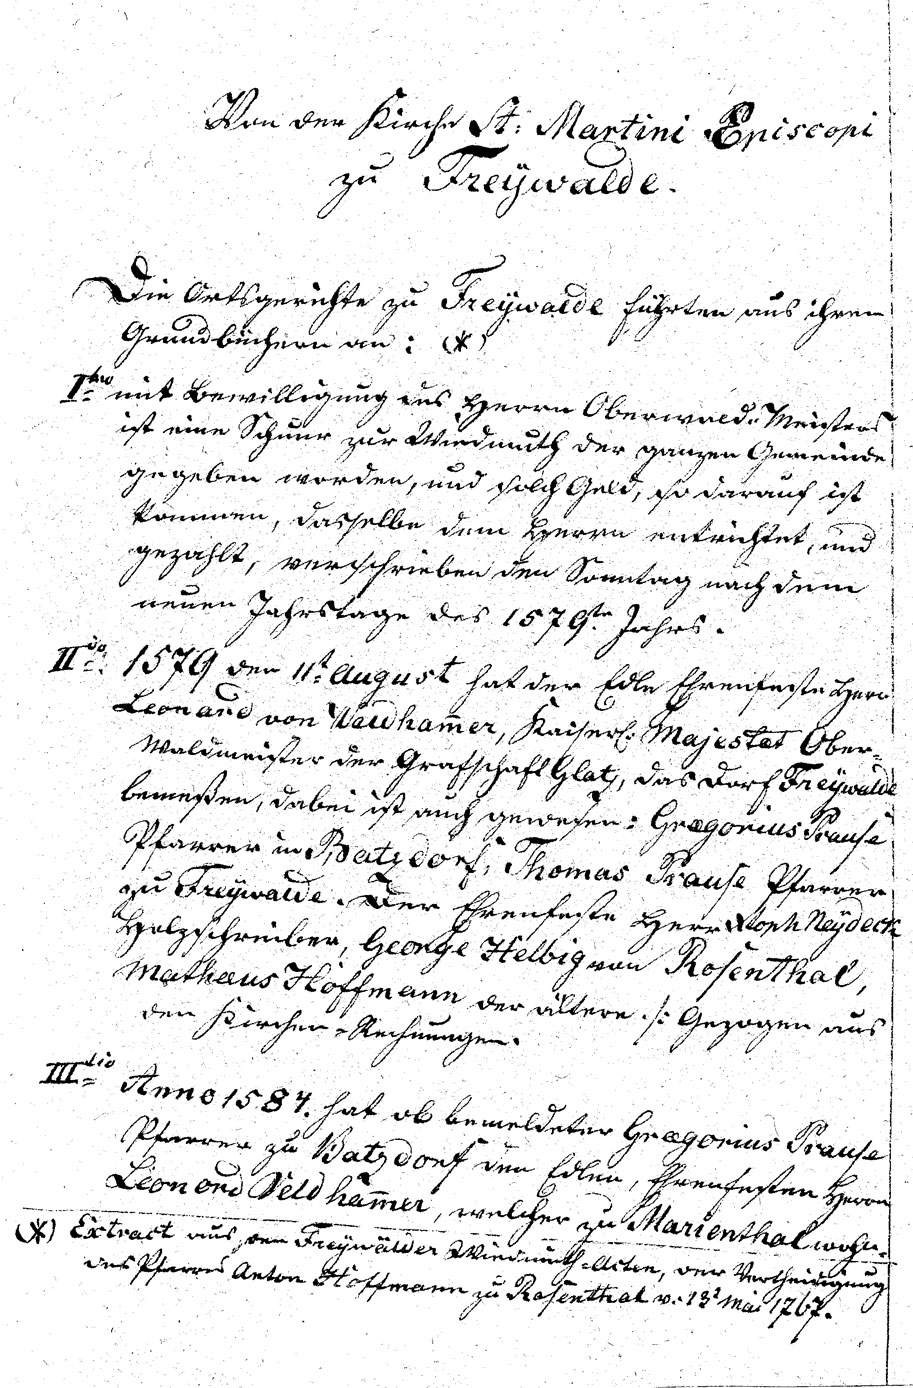 Von der Kirche St: Martini Episcopi
zu Freÿwalde.
Die Ortsgerichte zu Freÿwalde führten aus ihren
Grundbüchern an: (*)
I.mo mit Bewilligung des Herrn Oberwald-Meisters
ist eine Schnur zur Wiedmuth der ganzen Gemeinde
gegeben worden, und solch Geld, so darauf ist
kommen, dasselbe dem Herrn entrichtet, und
gezahlt, verschrieben den Sonntag nach dem
neuen Jahrstage des 1579.ten Jahrs.
II.do 1579 den 11t. August hat der Edle Ehrenfeste Herr
Leonard von Veldham̄er, Kaiserl: Majestæt Ober-
Waldmeister der Grafschaft Glatz, das Dorf Freÿwalde
bemeßen, dabei ist auch gewesen: Grægorius Prause
Pfarrer in Batzdorf, Thomas Prause Pfarrer
zu Freÿwalde. Der Ehrenfeste Herr Xtoph Neÿdeck
Holzschreiber, George Helbig von Rosenthal,
Mathæus Hoffmann der ältere ./: Gezogen aus
den Kirchen-Rechnungen.
III.tio Anno 1587. hat ob bemeldeter Grægorius Prause
Pfarrer zu Batzdorf den Edlen, Ehrenfesten Herrn
Leonard Veldham̄er, welcher zu Marienthal wohn-
(*) Extract aus den Freÿwälder Wiedmuth-Acten, der Vertheidigung
des Pfarrers Anton Hoffmann zu Rosenthal v. 13t Mai 1767.